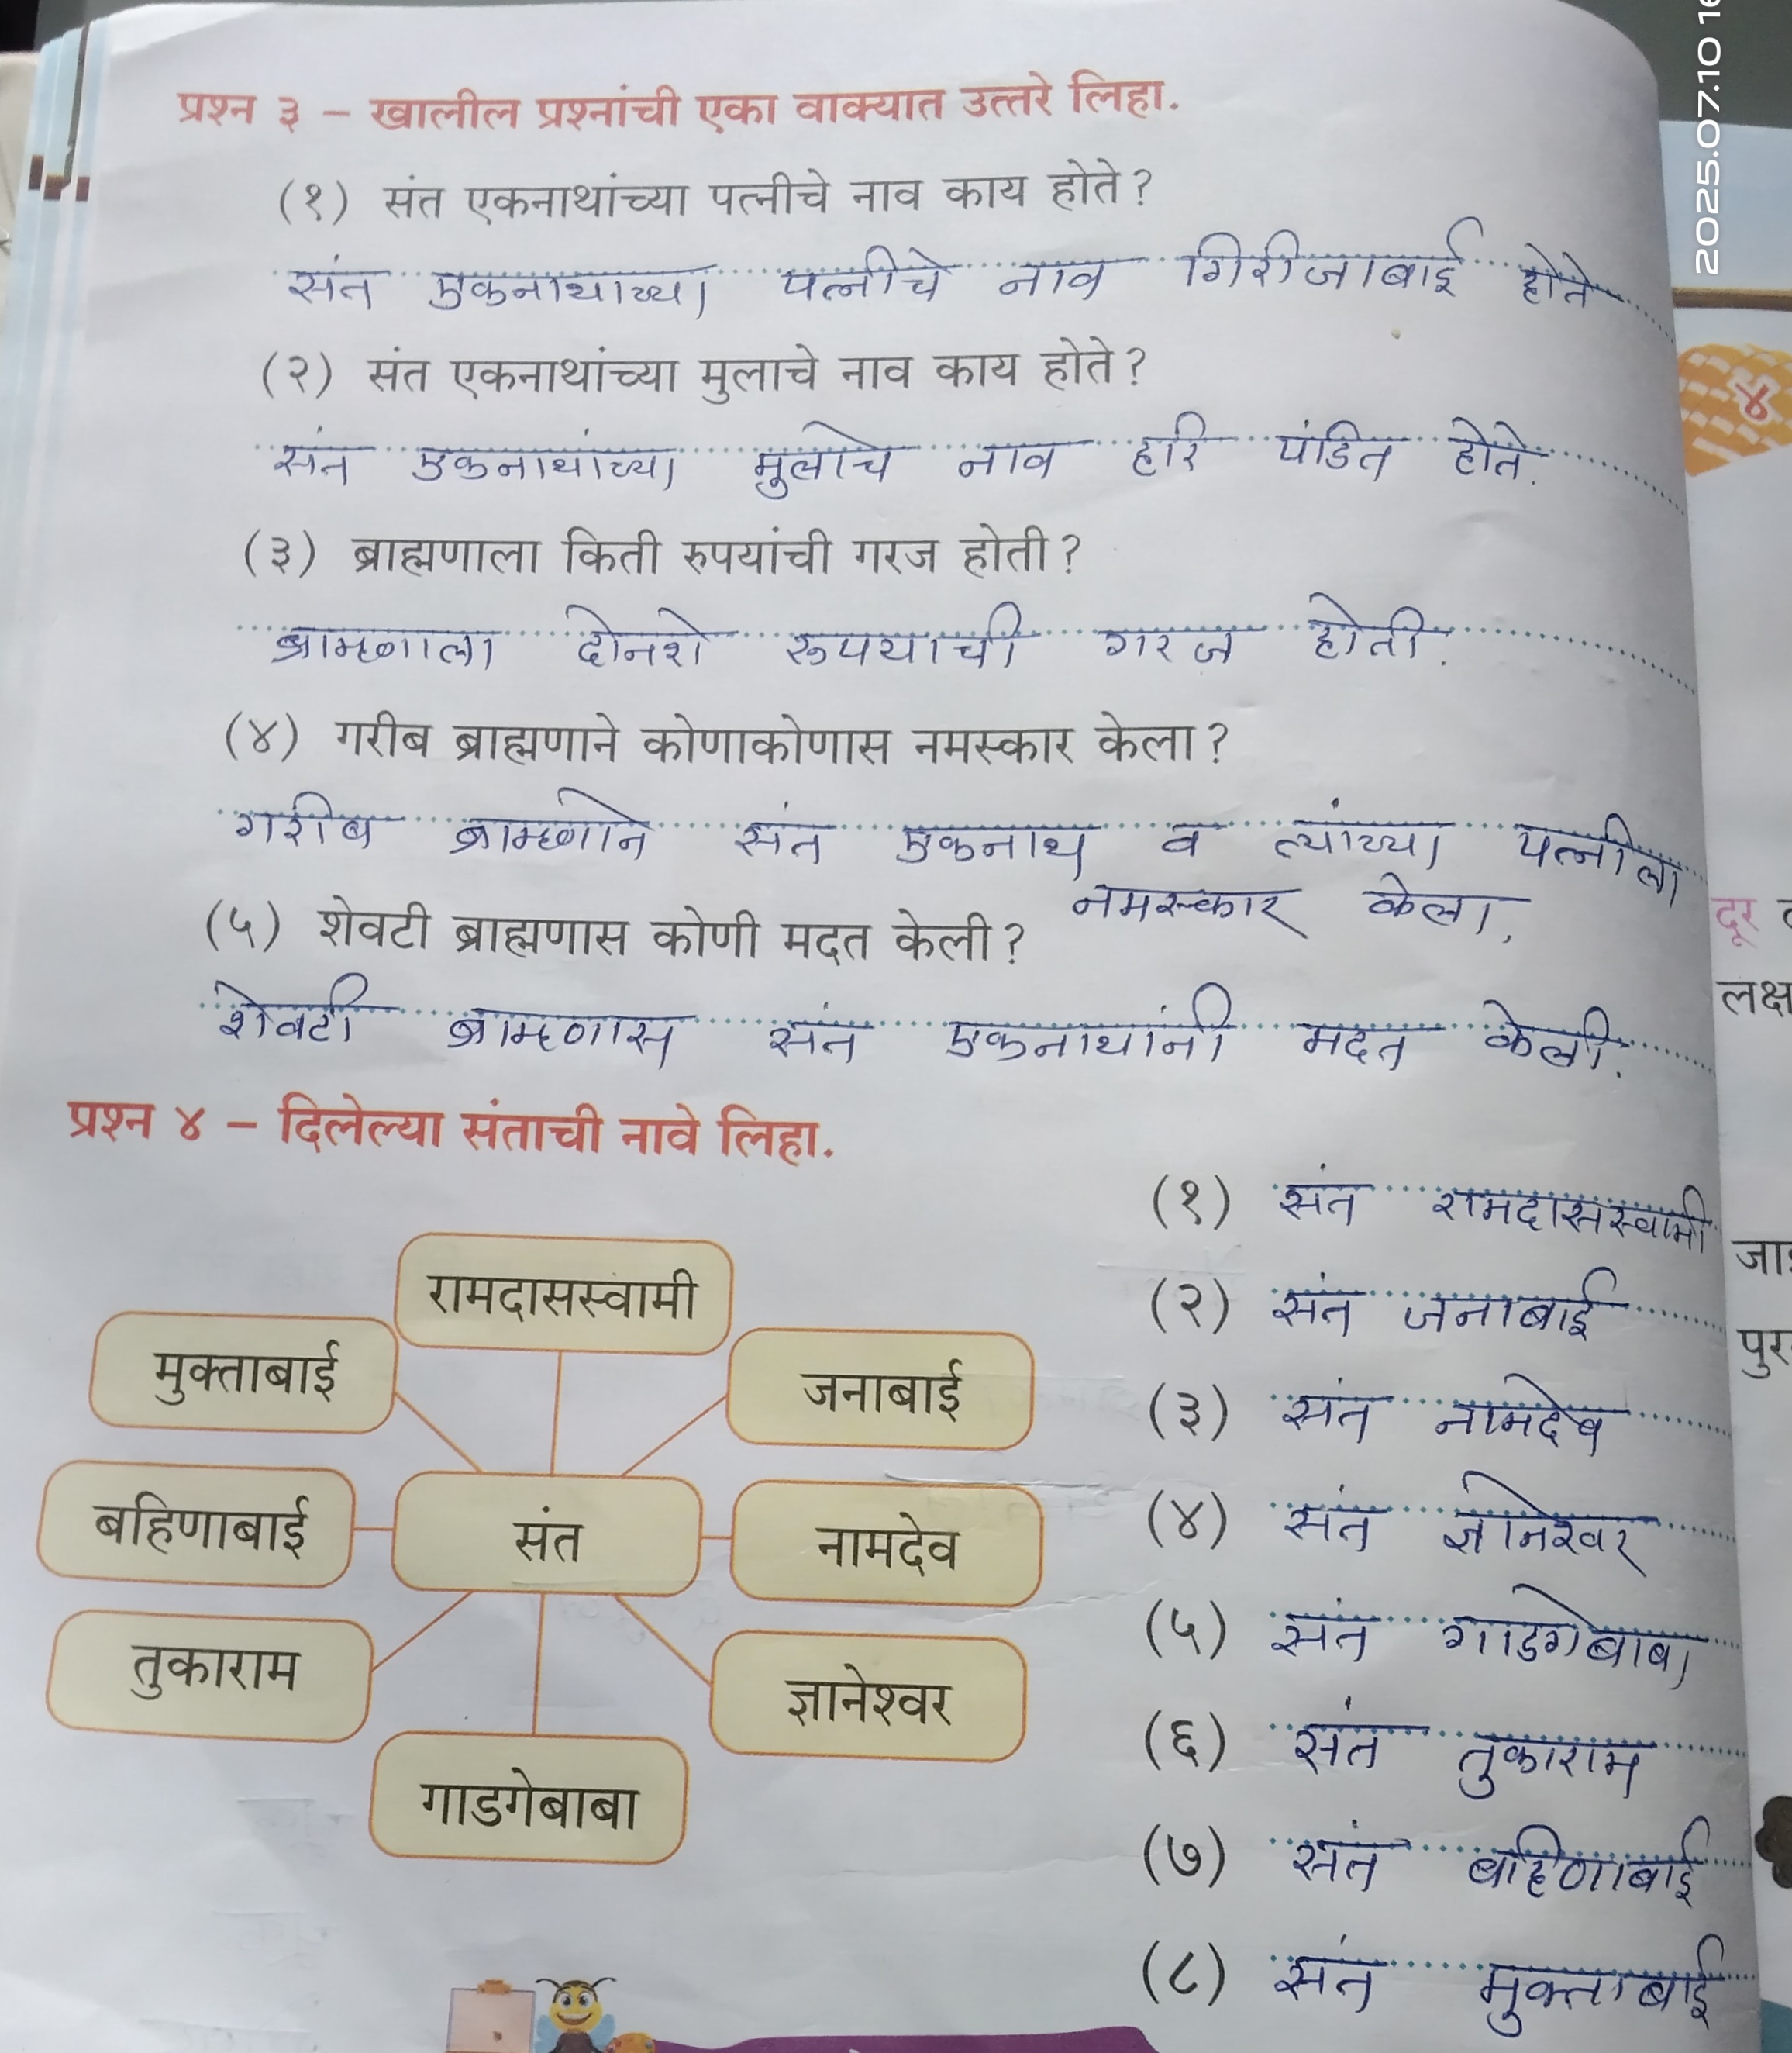 2025.07.10 16
प्रश्न ३ – खालील प्रश्नांची एका वाक्यात उत्तरे लिहा.
(१) संत एकनाथांच्या पत्नीचे नाव काय होते?
संत एकनाथाच्या पत्नीचे नाव गिरीजाबाई होते
(२) संत एकनाथांच्या मुलाचे नाव काय होते?
संत एकनाथांच्या मुलाचे नाव हरि पंडित होते.
(३) ब्राह्मणाला किती रुपयांची गरज होती?
ब्राम्हणाला दोनशे रूपयाची गरज होती.
(४) गरीब ब्राह्मणाने कोणाकोणास नमस्कार केला?
गरीब ब्राम्हणाने संत एकनाथ व त्यांच्या पत्नीला
नमस्कार केला.
(५) शेवटी ब्राह्मणास कोणी मदत केली?
शेवटी ब्राम्हणास संत एकनाथांनी मदत केली.
प्रश्न ४ – दिलेल्या संताची नावे लिहा.
रामदासस्वामी
मुक्ताबाई
जनाबाई
बहिणाबाई
संत
नामदेव
तुकाराम
ज्ञानेश्वर
गाडगेबाबा
(१) संत रामदासस्वामी
(२) संत जनाबाई
(३) संत नामदेव
(४) संत ज्ञानेश्वर
(५) संत गाडगेबाबा
(६) संत तुकाराम
(७) संत बहिणाबाई
(८) संत मुक्ताबाई
४
दूर
लक्ष
पुर